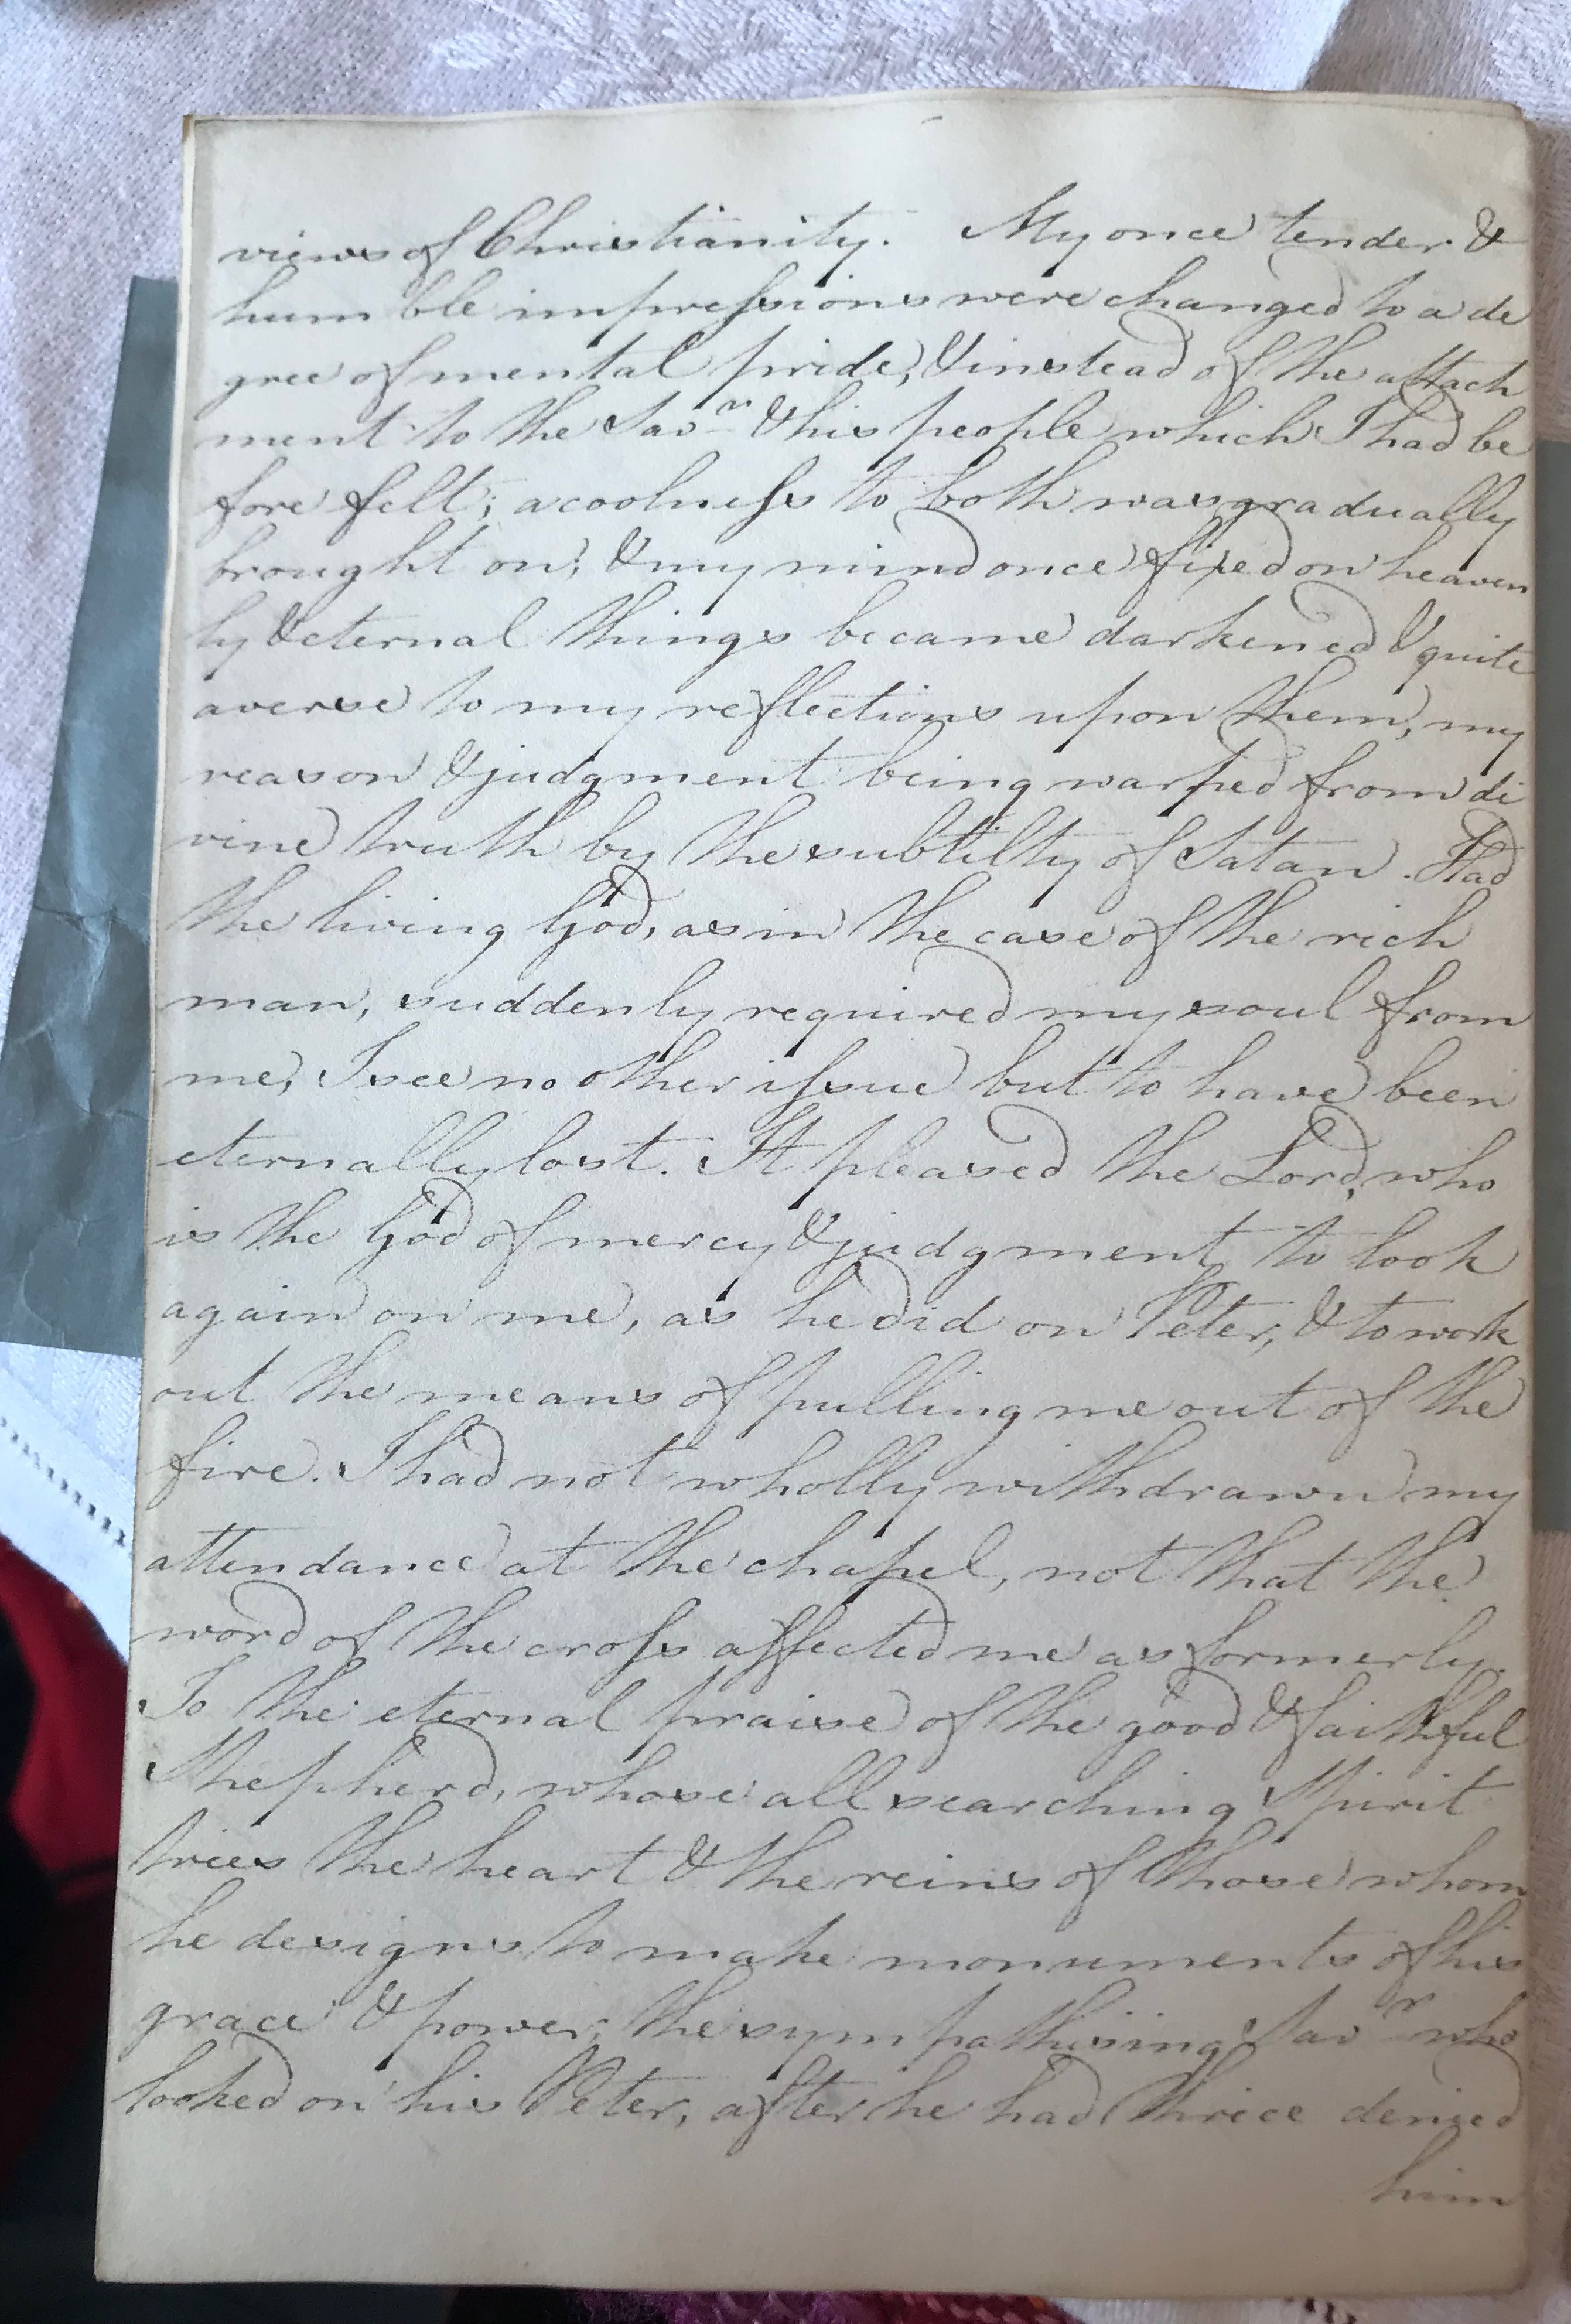 views of Christianity. My once tender &
humble impressions were changed to a de
gree of mental pride, & instead of the attach
ment to the Savr & his people which I had be
fore felt; a coolness to both was gradually
brought on; & my mind once fixed on heaven
ly & eternal things became darkened & quite
averse to my reflections upon them, my
reason & judgment being warped from di
vine truth by the subtilty of Satan. Had
the living God, as in the case of the rich
man, suddenly required my soul from
me, I see no other issue but to have been
eternally lost. It pleased the Lord, who
is the God of mercy & judgment, to look
again on me, as he did on Peter, & to work
out the means of pulling me out of the
fire. I had not wholly withdrawn my
attendance at the chapel, not that the
word of the cross affected me as formerly.
To the eternal praise of the good & faithful
Shepherd, whose all searching Spirit
tries the heart & the reins of those whom
he designs to make monuments of his
grace & power, the sympathising Savr who
looked on his Peter, after he had thrice denied
him